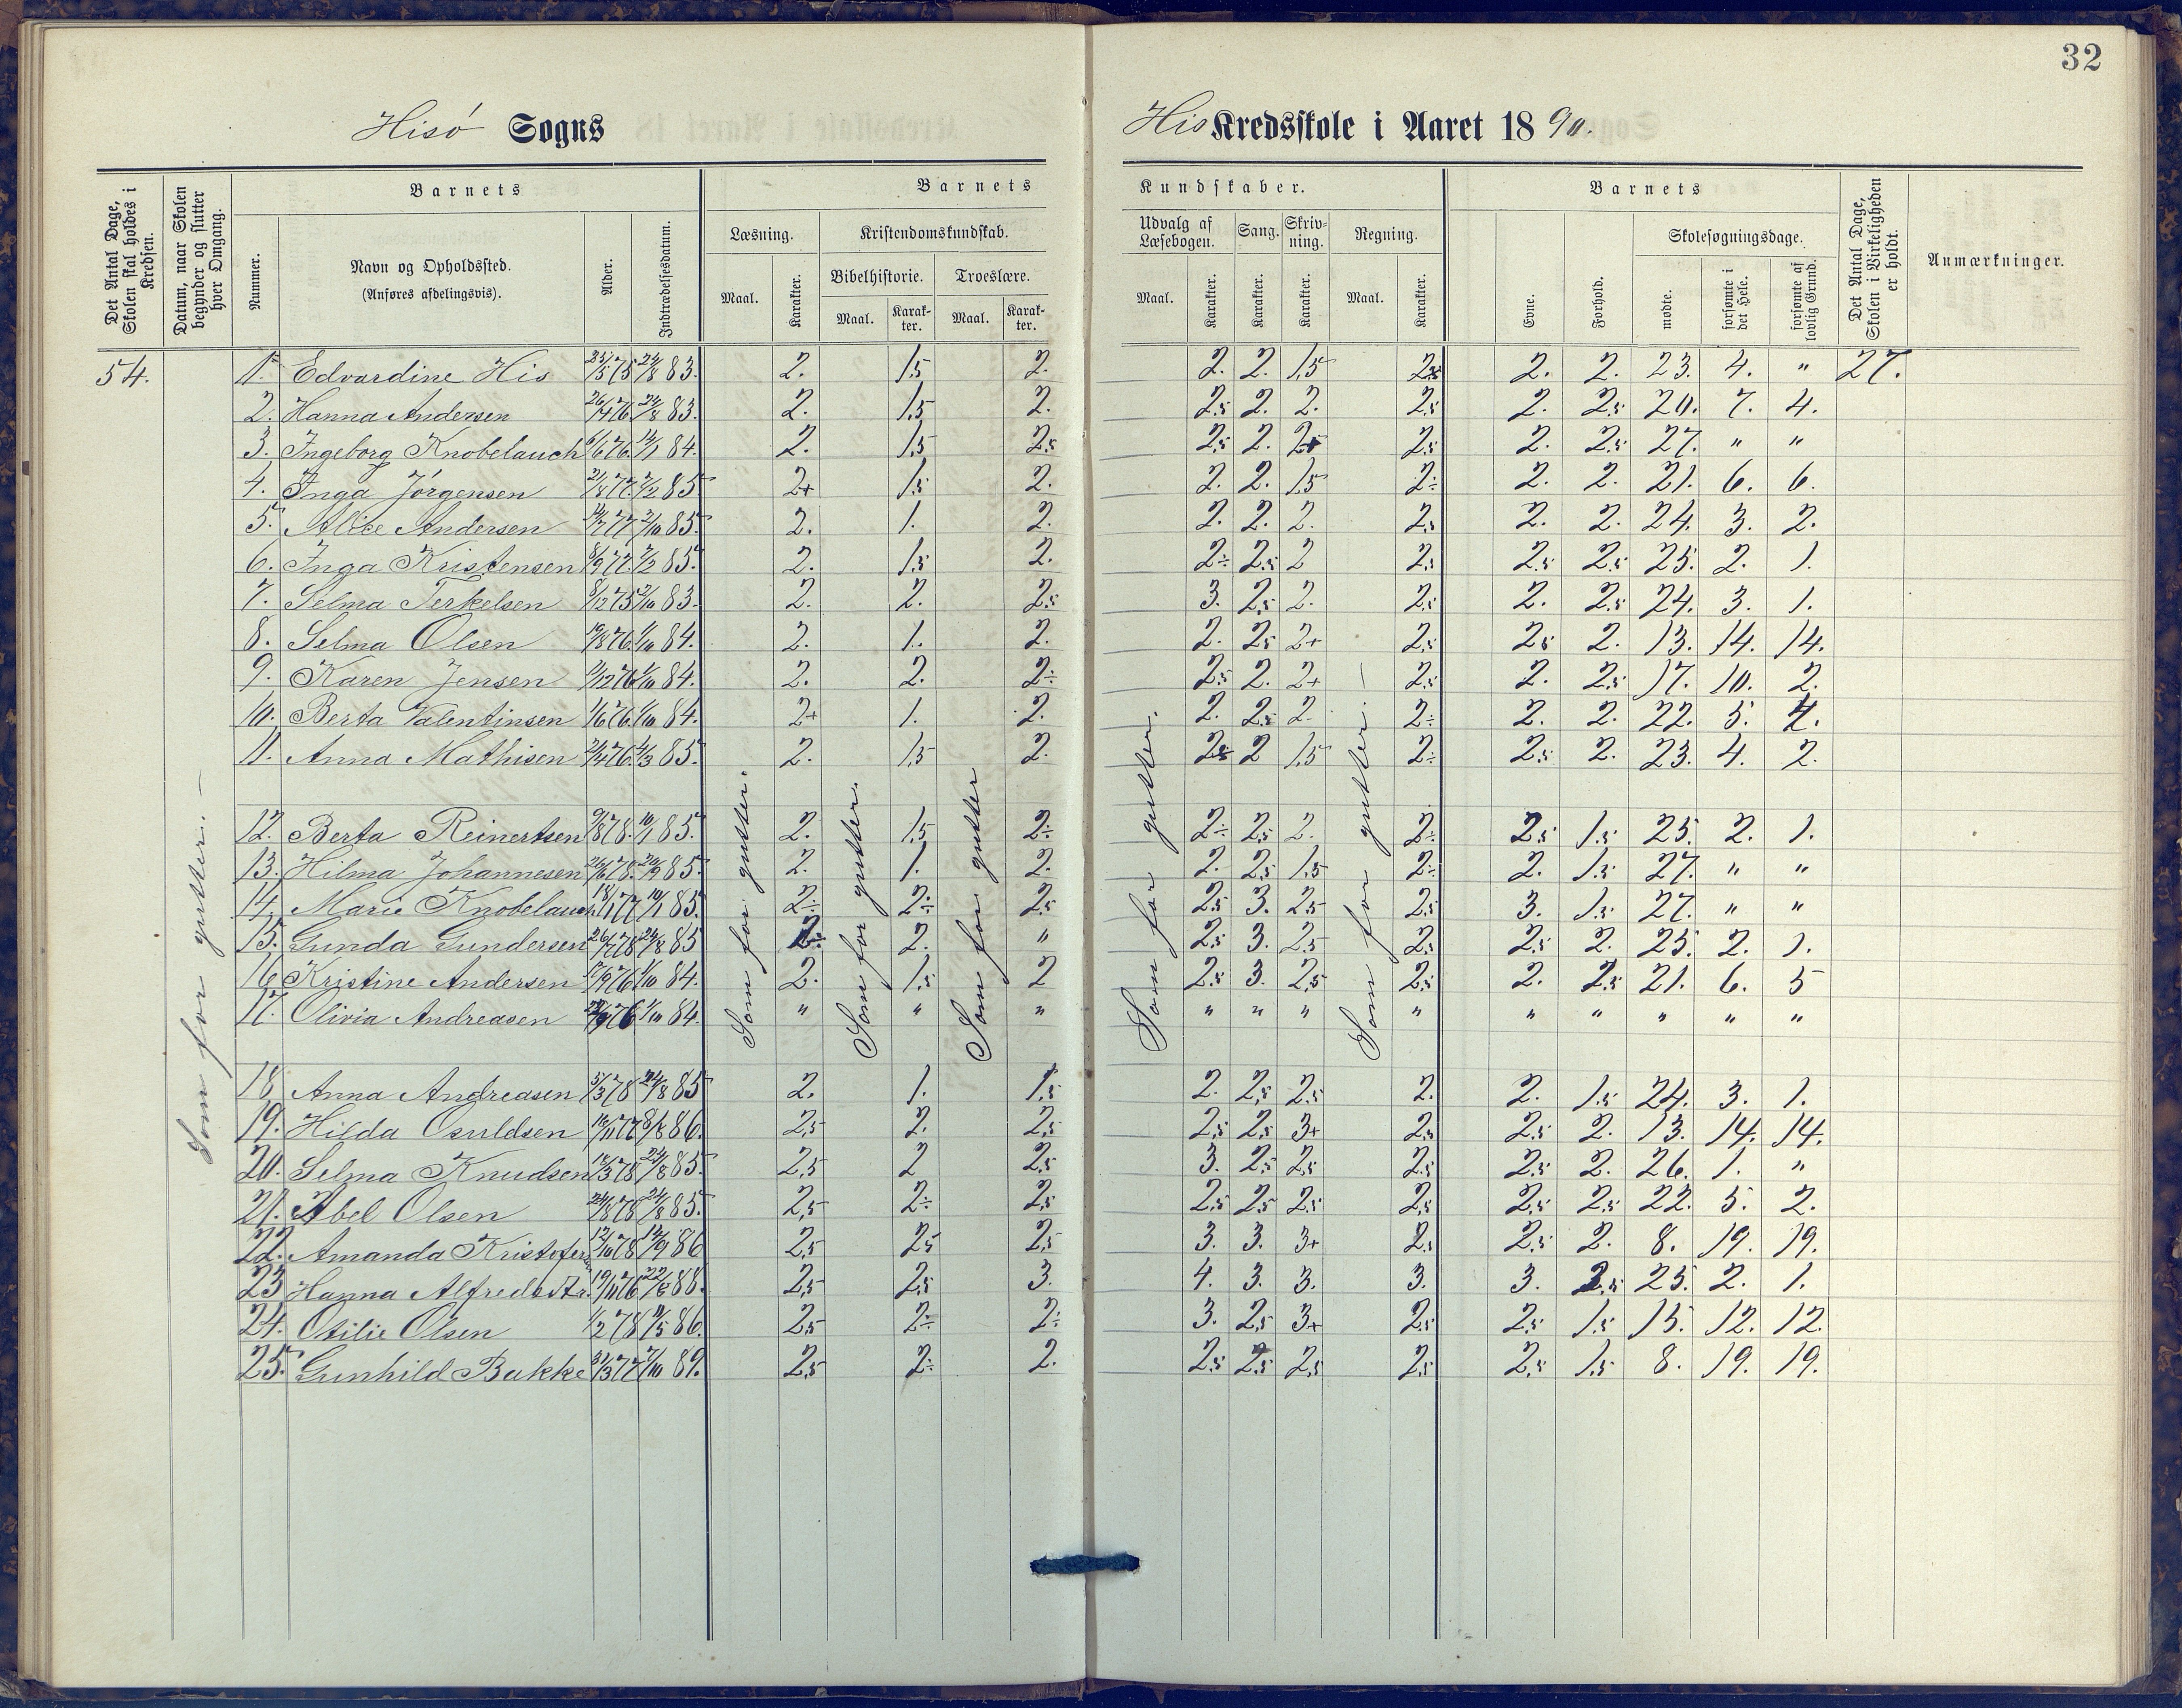 32
Hisø Sogns His Kredsskole i Aaret 1890.
Det Antal Dage, Skolen skal holdes i Kredsen.
Datum, naar Skolen begynder og slutter hver Omgang.
Barnets
Nummer.
Navn og Opholdssted. (Anføres afdelingsvis).
Alder.
Indtrædelsesdatum.
Barnets Kundskaber.
Læsning. Kristendomskundskab. Udvalg af Læsebogen. Sang. Skrivning. Regning.
Bibelhistorie. Troeslære.
Maal. Karakter. Maal. Karakter. Maal. Karakter. Maal. Karakter. Karakter. Karakter. Maal. Karakter.
Barnets
Evne. Forhold. Skolesøgningsdage.
mødte. forsømte i det Hele. forsømte af lovlig Grund.
Det Antal Dage, Skolen i Virkeligheden er holdt.
Anmærkninger.
54. 1. Edvardine His 23/5 75 24/8 83. 2. 1,5 2. 2. 2. 1,5 2,5 2. 2. 23. 4. " 27.
2. Hanna Andersen 26/4 76 24/8 83. 2. 1,5 2. 2,5 2. 2. 2,5 2. 2,5 20. 7. 4.
3. Ingeborg Knobelauch 6/6 76. 14/1 84. 2. 1,5 2,5 2,5 2. 2+ 2,5 2. 2,5 27. " "
4. Inga Jörgensen 21/8 77. 2/2 85 2+ 1,5 2. 2. 2. 1,5 2÷ 2. 2. 21. 6. 6.
5. Alice Andersen 77 2/10 85. 2. 1. 2. 2. 2. 2. 2,5 2. 2. 24. 3. 2.
6. Inga Kristensen 8/9 77. 2/2 85. 2. 1,5 2. 2÷ 2,5 2 2,5 2,5 2,5 25. 2. 1.
7. Selma Terkelsen 8/12 75 2/10 83. 2. 2. 2,5 3. 2,5 2. 2,5 2. 2,5 24. 3. 1.
8. Selma Olsen 19/8 76. 1/10 84. 2. 1. 2. 2. 2,5 2+ 2,5 2,5 2. 13. 14. 14.
9. Karen Jensen 2/12 76 1/10 84. 2. 2. 2÷ 2,5 2. 2+ 2,5 2. 2,5 17. 10. 2.
10. Berta Valentinsen 1/6 76. 1/10 84. 2+ 1. 2. 2. 2,5 2. 2÷ 2. 2. 22. 5. 4.
11. Anna Mathisen 2/4 76. 4/3 85. 2. 1,5 2. 2,5 2 1,5 2÷ 2,5 2. 23. 4. 2.
12. Berta Reinertsen 9/8 78. 10/1 85. 2. 1,5 2÷ 2÷ 2,5 2. 2÷ 2,5 1,5 25. 2. 1.
13. Hilma Johannesen 26/6 78. 20/9 85. 2. 1. 2. 2. 2,5 1,5 2÷ 2. 1,5 27. " "
14. Marie Knobelauch 18/1 77 10/1 85. 2÷ 2÷ 2,5 2,5 3. 2,5 2,5 3. 1,5 27. " "
15. Gunda Gundersen 26/7 78 24/8 85 2÷ 2. " 2,5 3. 2,5 2,5 2,5 2. 25. 2. 1.
16 Kristine Andersen 17/9 76 1/10 84. 2. 1,5 2 2,5 3. 2,5 2,5 2. 2,5 21. 6. 5
17. Olivia Andreasen 76 1/10 84. " " " " " " " " " " " "
18. Anna Andreasen 5/3 78 24/8 85 2. 1. 1,5 2. 2,5 2,5 2. 2. 1,5 24. 3. 1.
19. Hilda Osuldsen 18/11 77 8/8 86. 2,5 2. 2,5 2,5 2,5 3+ 2,5 2,5 2. 13. 14. 14.
20. Selma Knudsen 18/3 78 24/8 85. 2,5 2 2,5 3. 2,5 2,5 2,5 2,5 2. 26. 1. "
21. Abel Olsen 24/8 78 24/8 85. 2,5 2÷ 2,5 2,5 2,5 2,5 2,5 2,5 2,5 22. 5. 2.
22. Amanda Kristofers 12/10 78 14/9 86 2,5 2,5 2,5 3. 3. 3+ 2,5 2,5 2. 8. 19. 19.
23 Hanna Alfredsdtr. 19/11 76 22/8 88. 2,5 2,5 3. 4. 3. 3. 3. 3. 2,5 25. 2. 1.
24. Otilie Olsen 1/2 78 11/5 86. 2,5 2÷ 2÷ 3. 2,5 3+ 2,5 2,5 1,5 15. 12. 12.
25. Gunhild Bakke 31/3 77 7/10 89. 2,5 2÷ 2. 2,5 2,5 2,5 2,5 2,5 1,5 8. 19. 19.
Som for gutter. –
Som for gutter.
Som for gutter.
Som for gutter
Som for gutter.
Som for gutter. –